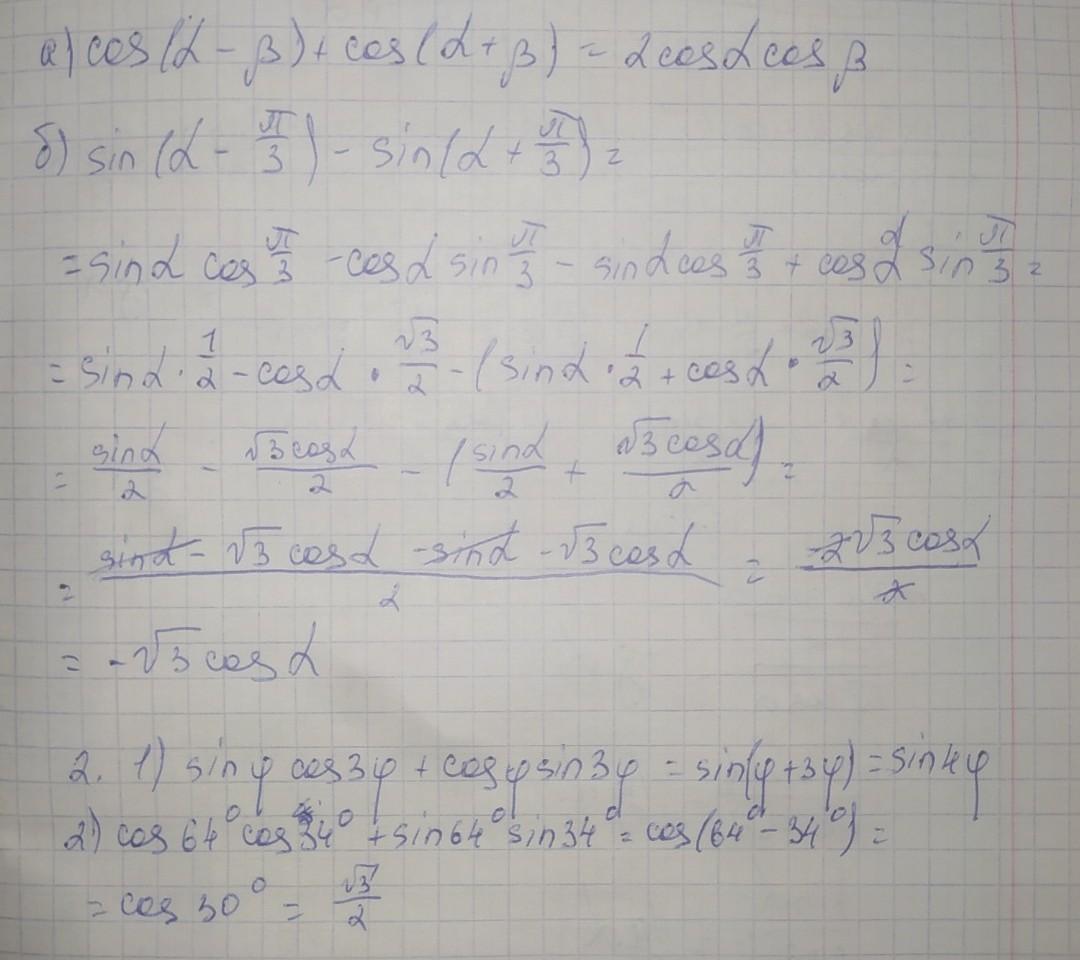 а) cos(α - β) + cos(α + β) = 2cosα cos β
б) sin(α - π/3) - sin(α + π/3) =
= sinα cos π/3 - cosα sin π/3 - sinα cos π/3 + cosα sin π/3 =
= sinα · 1/2 - cosα · √3/2 - (sinα · 1/2 + cosα · √3/2) =
= sinα/2 - √3 cosα/2 - (sinα/2 + √3 cosα/2) =
= (sinα - √3 cosα - sinα - √3 cosα)/2 = -2√3 cosα/2
= -√3 cosα
2. 1) sinφ cos3φ + cosφ sin3φ = sin(φ + 3φ) = sin4φ
2) cos64° cos34° + sin64° sin34° = cos(64° - 34°) =
= cos 30° = √3/2